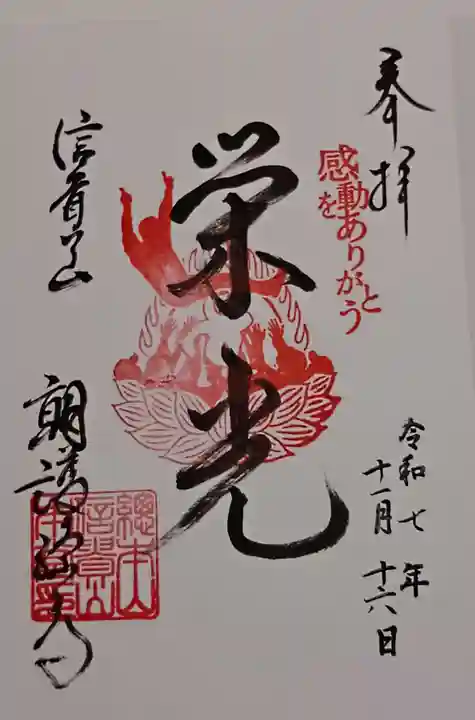 奉拝
感動を
ありがとう
栄光
信貴山
朝護孫子寺
総本山
信貴山
令和七年
十一月十六日